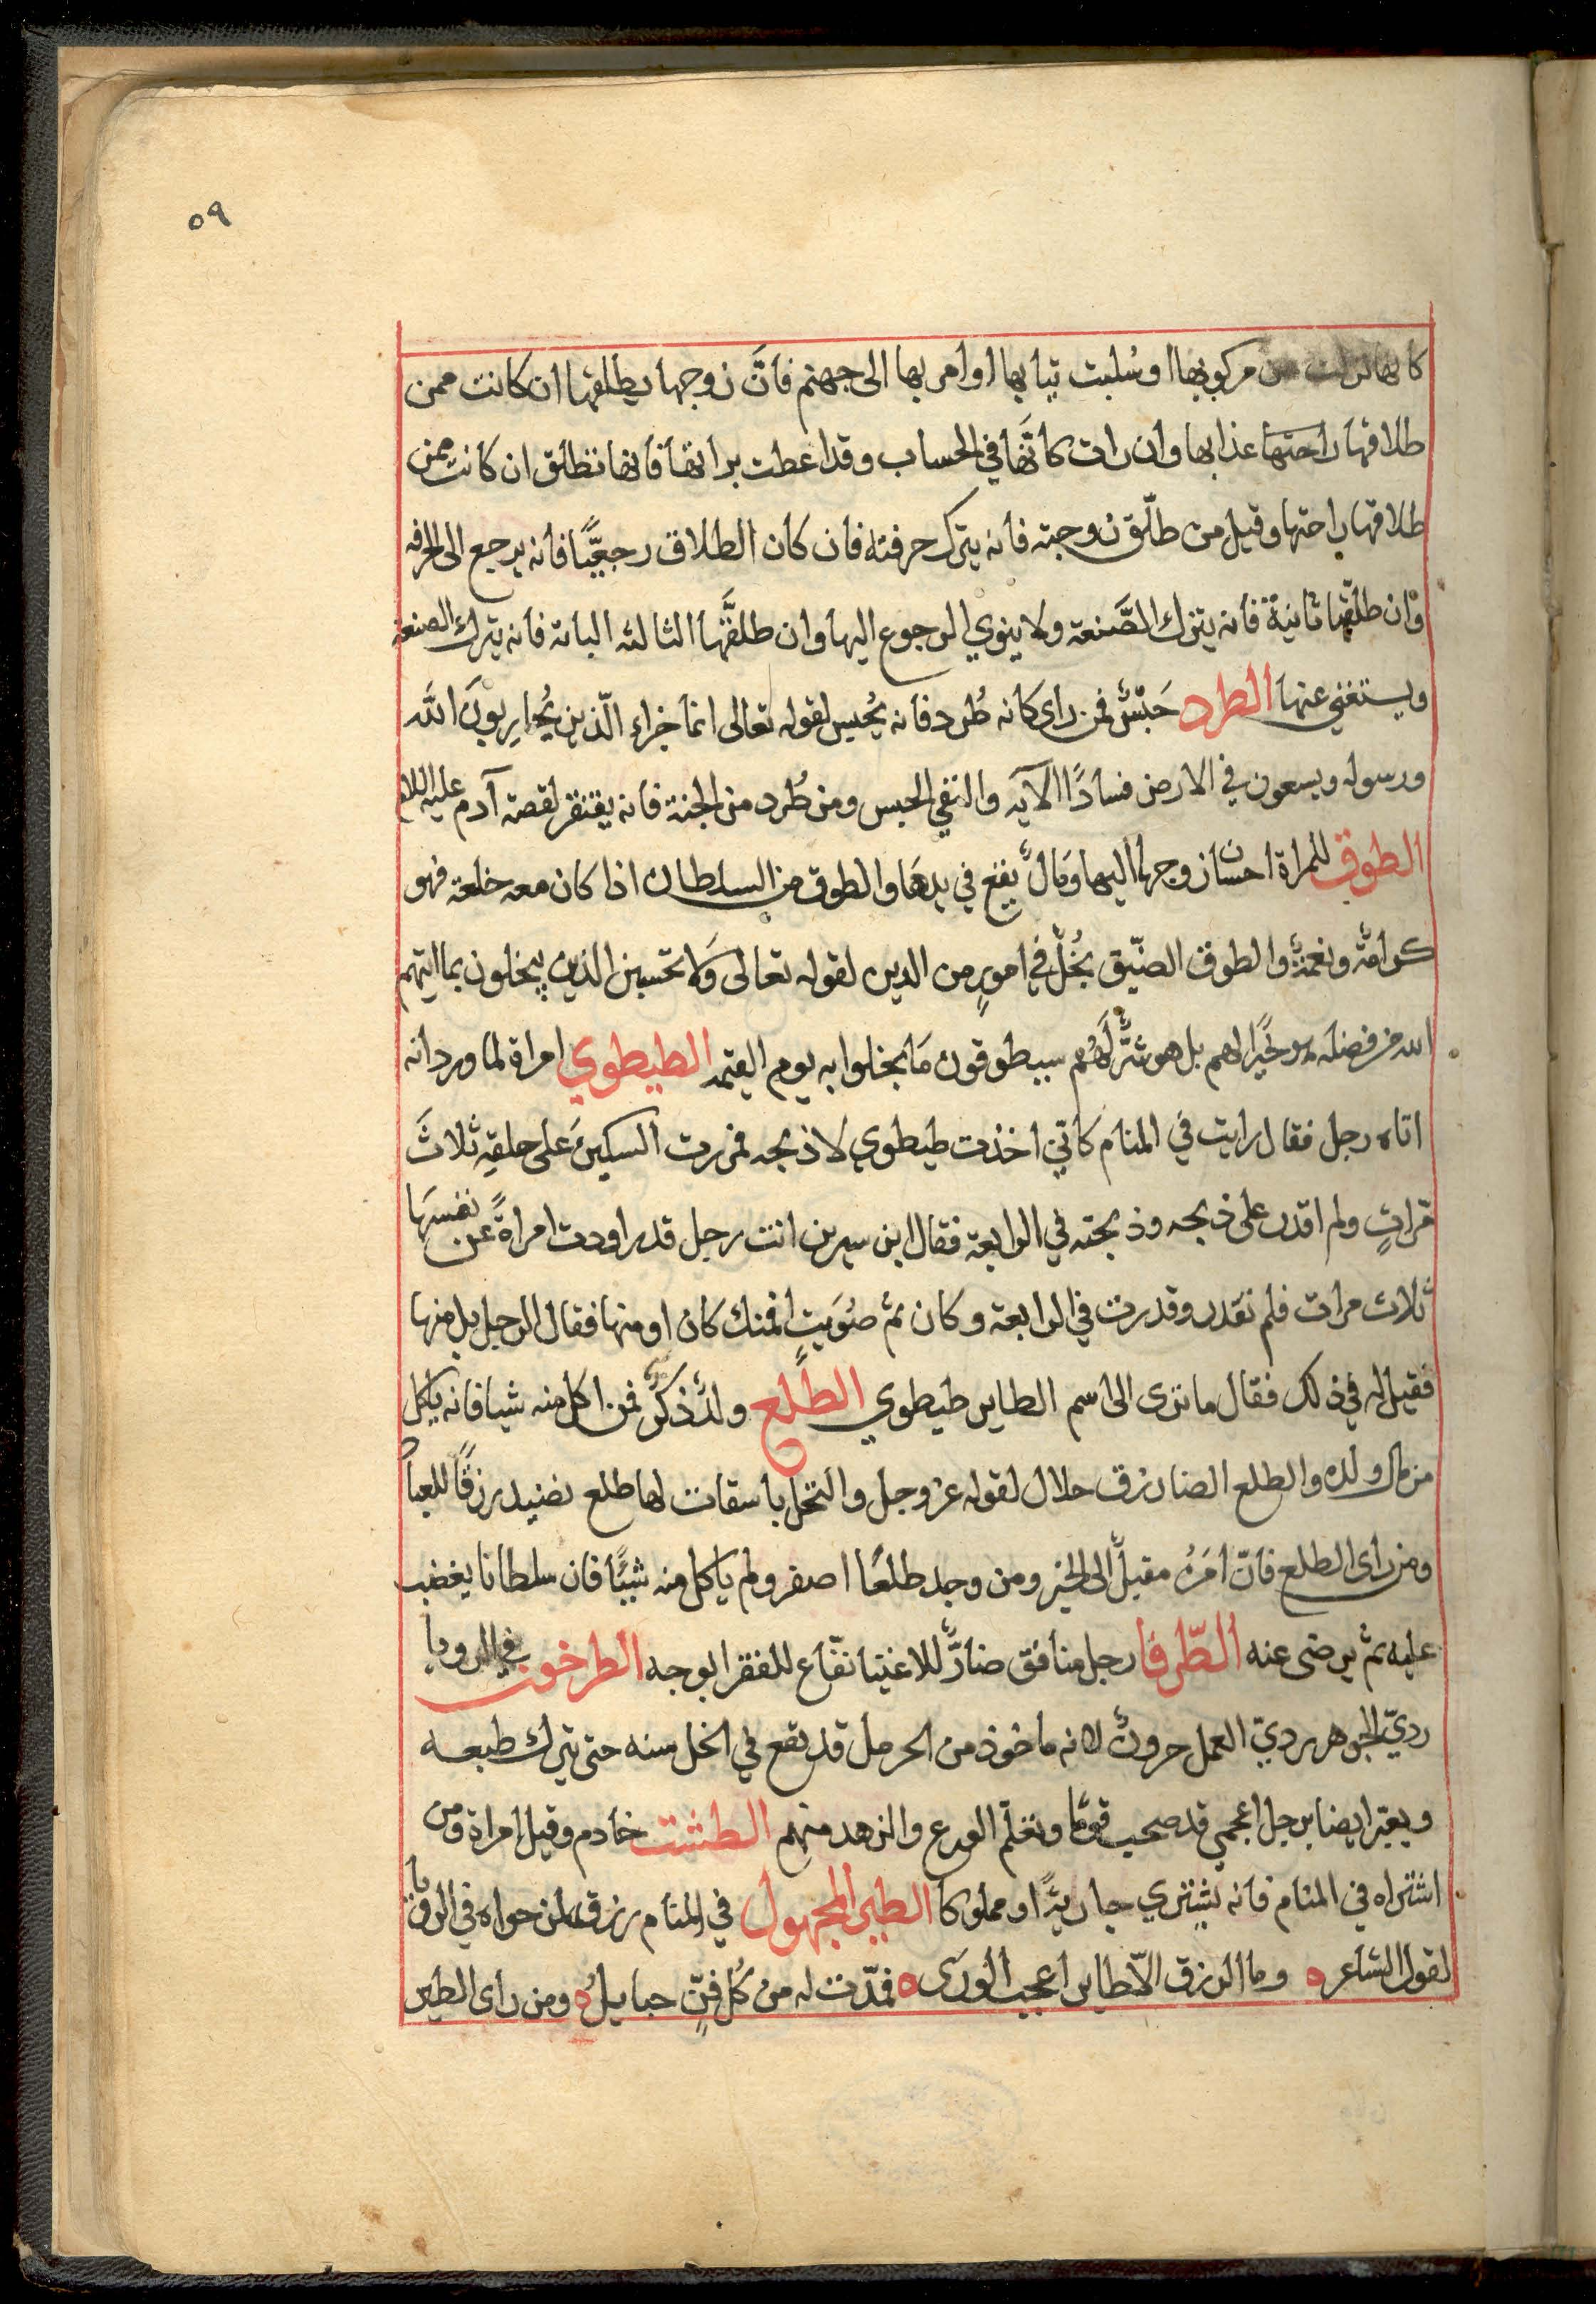 ٥٩
كانها نزلت من مركوبها او سُلبت ثيابها او امر بها الى جهنم فانَّ زوجها يطلقها ان كانت ممن
طلاقها راحتها عذابها وان رات كانَّها في الحساب وقد اعطت براتها فانها تطلق ان كانت ممن
طلاقها راحتها وقيل من طلّق زوجته فانه يترك حرفته فان كان الطلاق رجعيًّا فانه يرجع الى الحرفه
وان طلقها ثانيةً فانه يترك الصَّنعة ولا ينوي الرجوع اليها وان طلقَّها الثالثه الباته فانه يترك الصنعة
ويستغني عنها الطرد حَبْسٌ فمن راى كانه طُرد فانه يُحبس لقوله تعالى انما جزاء الّذين يُحاربون الله
ورسوله ويسعون في الارض فسادًا الآيه والنفي الحبس ومن طُرد من الجنة فانه يفتقر لقصة آدم عليه السلام
الطوق للمراة احسان زوجها اليها ومَالٌ يقع في يدها والطوق من السلطان اذا كان معه خلعة فهو
كرامةٌ ونعمةٌ والطوق الضيّق بُخلٌ في امورٍ من الدين لقوله تعالى وَلا تحسبن الذين يبخلون بما اتيهم
الله من فضله هو خَيرًا لهم بل هو شَرٌّ لَهُم سيطوقون مَا بخلوا به يوم القيمة الطيطوي امراة لما ورد انه
اتاه رجل فقال رايت في المنام كاني اخذت طيطوي لاذبحه فمررت السكينَ على حلقِه ثلاثَ
مَراتٍ ولم اقدر على ذبحه وذبحته في الرابعة فقال ابن سيرين انت رجل قد راودت امراةً عن نفسَها
ثلاث مرات فلم تقدر وقدرت في الرابعة وكان ثم صُوَيتٌ افمنك كان او منها فقال الرجل بل منها
فقيل له في ذلك فقال ما ترى الى اسم الطاير طيطوي الطلع ولدٌ ذكرٌ فمن اكل منه شيا فانه ياكل
من مال ولده والطلع ايضا رزق حلال لقوله عز وجل والنخل باسقات لها طلع نضيد رزقًا للعباد
ومن راى الطلع فانّ امَرُه مقبلٌ الى الخير ومن وجد طلعًا اصفر ولم ياكل منه شيئًا فان سلطانا يغضب
عليه ثم يرضى عنه الطّرفا رجل منافق ضارٌّ للاغنيا نفّاع للفقرا بوجه الطرخون في الرويا
رديّ الجوهر رديّ العمل حرونٌ لانه ماخوذ من الحرمل قد يقع في الخل سنه حتى يترك طبعه
ويعبّر ايضا برجل اعجمي قد صحب قومًا وتعلّم الورع والزهد منهم الطشت خادم وقيل امراة ومن
اشتراه في المنام فانه يشتري جاريةً او مملوكا الطير المجهول في المنام رزق لمن حواه في الرويا
لقول الشاعر ه وما الرزق الّا طاير اعجب الورَى ه فمُدّت له من كُل فنٍّ حبايلُ ه ومن راى الطير